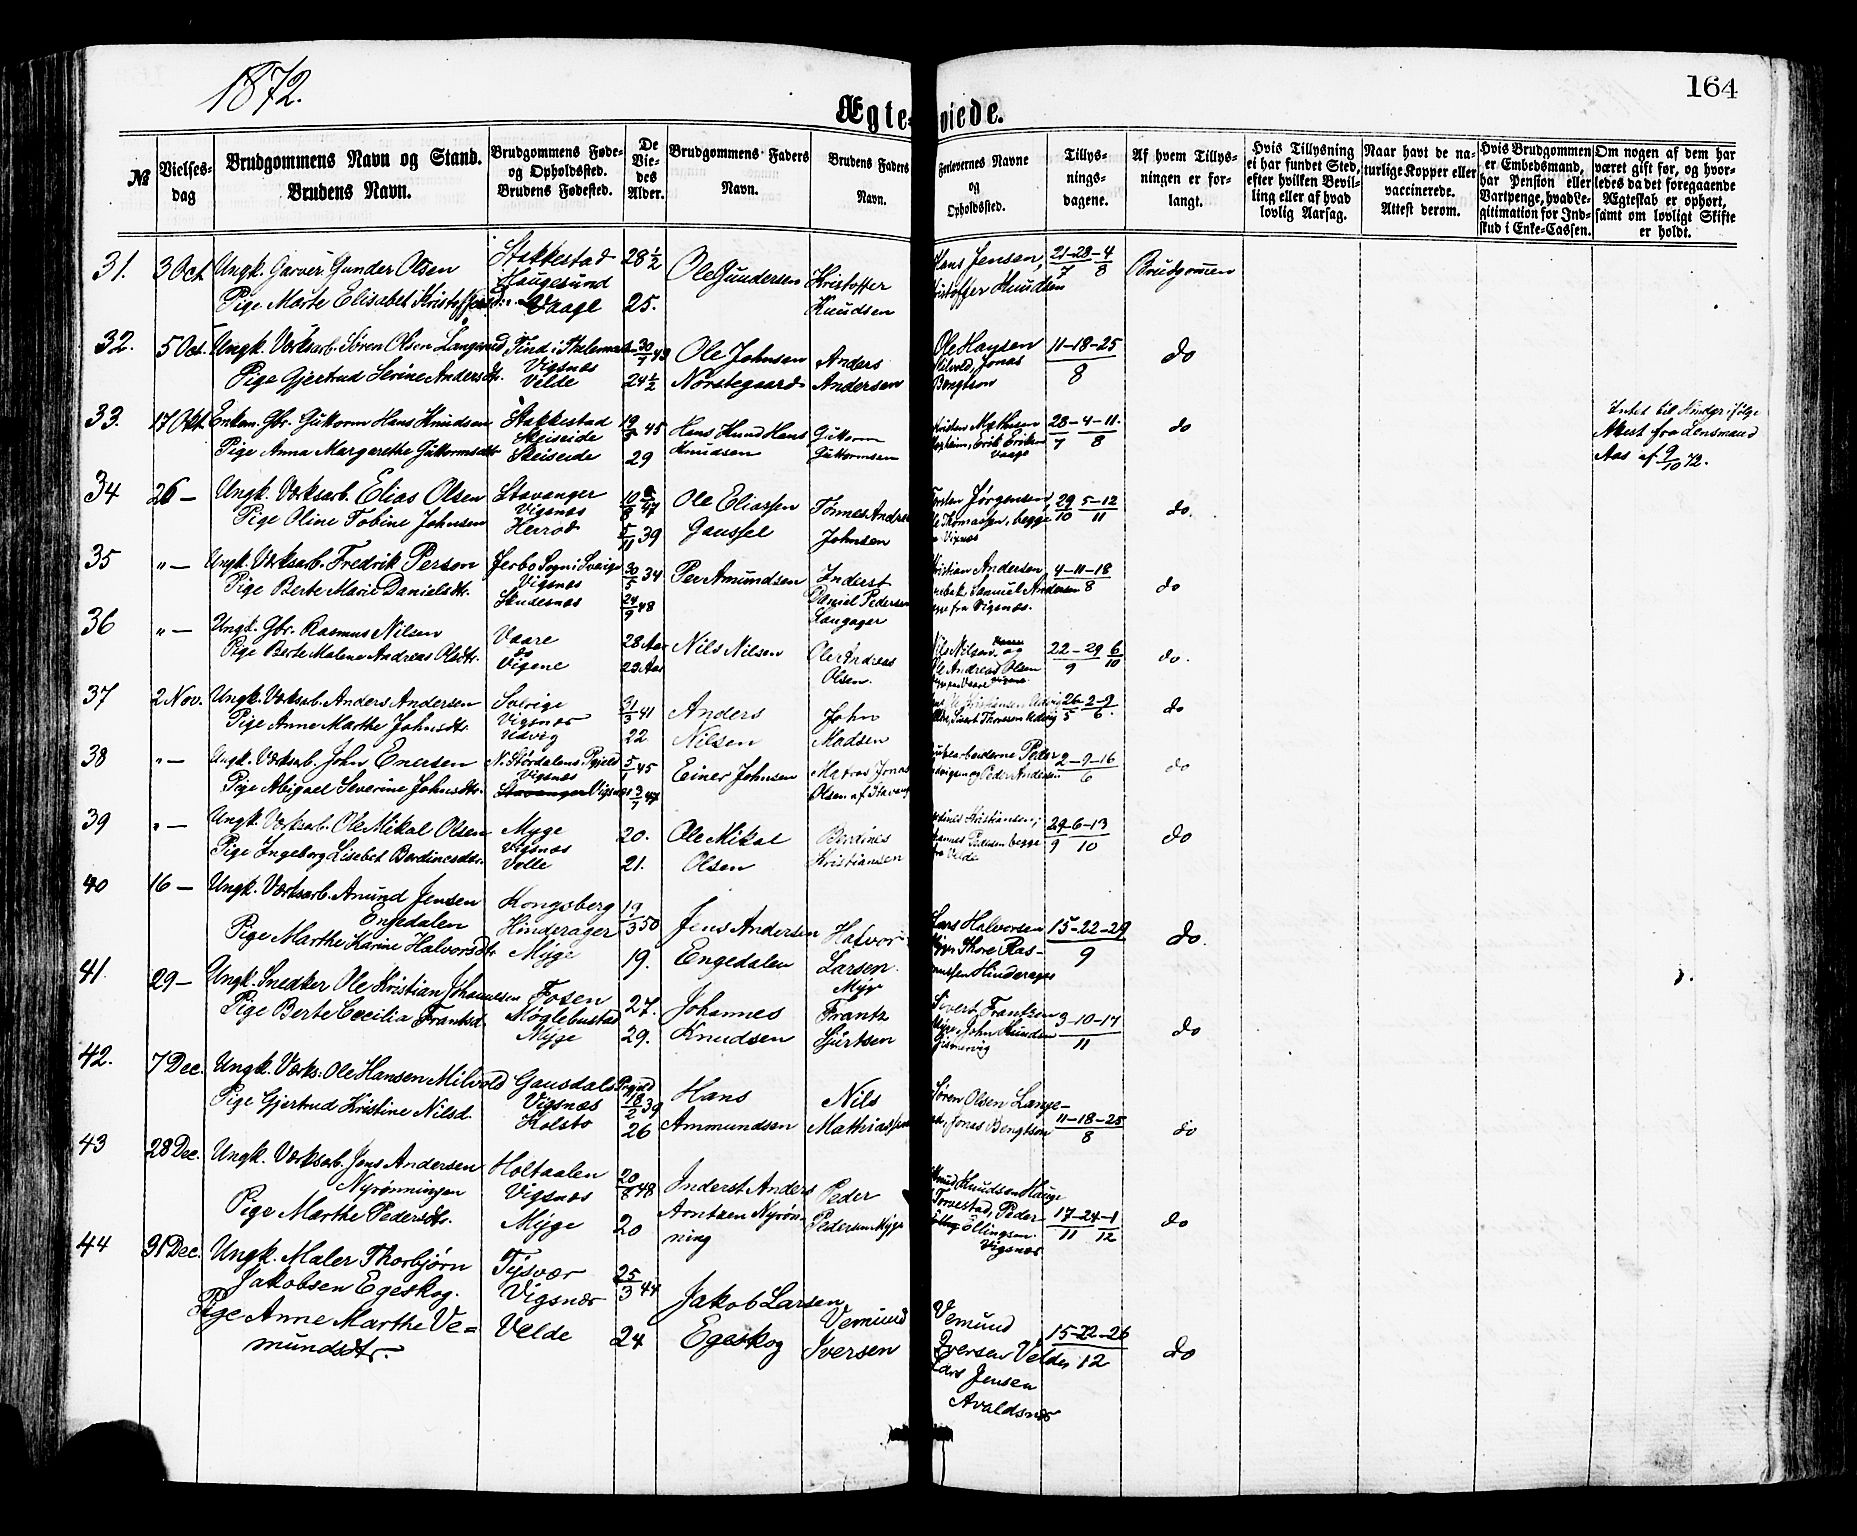 1872.
164
Ægteviede.
№
Vielses-
dag
Brudgommens Navn og Stand.
Brudens Navn.
Brudgommens Føde-
og Opholdssted.
Brudens Fødested.
De
Vie-
des
Alder.
Brudgommens Faders
Navn.
Brudens Faders
Navn.
Forlovernes Navne
og
Opholdssted.
Tillys-
nings-
dagene.
Af hvem Tillys-
ningen er for-
langt.
Hvis Tillysning
ei har fundet Sted,
efter hvilken Bevil-
ling eller af hvad
lovlig Aarsag.
Naar havt de na-
turlige Kopper eller
vaccinerede.
Attest derom.
Hvis Brudgommen
er Embedsmand,
har Pension eller
Vartpenge, hvad Le-
gitimation for Ind-
skud i Enke-Cassen.
Om nogen af dem har
været gift før, og hvor-
ledes da det foregaaende
Ægteskab er ophørt,
samt om lovligt Skifte
er holdt.
31. 3 Oct. Ungk. Garver Gunder Olsen
Pige Marte Elisabet
Stakkestad
Haugesund
Vaage
28 1/2
25.
Ole Gundersen
Kristoffer
Knudsen
Hans Jensen,
Kristoffer Knudsen
21-28-4
7 8
Brudgommen
32. 5 Oct. Ungk. Værksarb. Søren Olsen Langerud
Pige Gjertrud Serine Andersdtr.
Tind i Thelemark
Vigsnæs
Velde
24 1/2
Ole Johnsen
Norstegaard
Anders
Andersen
Ole Hansen
Milvold, Jonas
Bengtson
11-18-25
8
do
33. 17 Okt. Enkem. Gbr. Guttorm Hans Knudsen
Pige Anna Margarethe Guttormsdtr
Stakkestad
Skeiseide
Skeiseide
45
29
Hans Knud Hans
Knudsen
Guttorm
Guttormsen
Erik Eriksen
Vaage
28-4-11.
7 8
do
Attest fra Lensmand
Aas af 9/10 72.
34 26 — Ungk. Værksarb. Elias Olsen
Pige Oline Tobine Johnsen
Stavanger
Vigsnæs
47
5/11 39
Ole Eliassen
Gaussel
Tønnes Andreas
Johnsen
Torsten Jørgensen,
Ole Thomassen, begge
Vixnæs
29 5-12
10 11
do.
35 "— Ungk. Værksarb. Fredrik Person
Pige Berte Marie Danielsdtr.
Jerbo Sogn i Sverige
Vigsnæs
Skudesnæs
30/5 34
24/9 48
Per Amundsen
Inderst
Daniel Pedersen
Langager
Kristian Andersen
Samuel Andersen
begge fra Vigsnæs.
4-11-18
8
do
36 "— Ungk. Gbr. Rasmus Nilsen
Pige Berte Malene Andreas Olsdtr.
Vaare
do
Vigene
28 Aar
23 Aar
Nils Nilsen
Ole Andreas
Olsen.
Nils Nilsen, Vaare og
Ole Andreas Olsen
22-29 6
9 10
do.
37 2 Nov. Ungk. Værksarb. Anders Andersen
Pige Anne Marthe Johnsdtr.
Sverige
Vigsnæs
Udvig
31/3 41
22
Anders
Nilsen
John
Madsen
26-2-9
5 6.
do
38 "— Ungk. Værksarb. John Enersen
Pige Abigael Severine Johnsdtr.
N. Stördalens Pgjeld
Vigsnæs
Stavanger Vigsnæs
5/1 45
Einer Johnsen
Matros Jonas
Olsen af Stavanger
2-9-16
6
do
39 "— Ungk. Værksarb. Ole Mikal Olsen
Pige Ingeborg Lisebet Berdinesdtr.
Myge
Vigsnæs
Velle
20.
21.
Ole Mikal
Olsen
Berdines
Kristiansen
Berdines Kristiansen,
Pedersen begge
fra Velde
29-6-13
9 10
do
40 16 — Ungk. Værksarb. Amund Jensen
Engedalen
Pige Marthe Karine Halvorsdtr
Kongsberg
Hinderager
Myge
19/3 50
19.
Jens Andersen
Engedalen
Halvor
Larsen.
Myge
Lars Halvorsen
Myge, Thore Ras-
mussen Hinderager
15-22-29
9
do.
41. 29 — Ungk. Snedker Ole Kristian Johannesen
Pige Berte Cecilia Frantsd.
Fosen
Møglebustad
Myge
27.
29.
Johannes
Knudsen
Frantz
Sjurtsen
Sivert Frantzen
Myge, John Knudsen
3-10-17
11
do
42. 7 Dec. Ungk. Værks. Ole Hansen Milvold
Pige Gjertrud Kristine Nilsd.
Gausdals Pgjeld
Vigsnæs
Kolstø
18/2 39
26
Hans
Ammundsen
Nils
Mathiassen
Søren Olsen Lange-
rud, Jonas Bengtson
11-18-25
8
do
43 28 Dec. Ungk. Værksarb. Jens Andersen
Nyrønningen
Pige Marthe Pedersdtr.
Holtaalen
Vigsnæs
Myge
20/8 48
20
Inderst Anders
Arntsen Nyrøn-
ning
Peder
Pedersen Myge
Knud Knudsen Hauge
Tornestad, Peder
Ellingsen
Vigsnæs
17-24-1
11 12
do
44 31 Dec. Ungk. Maler Thorbjørn
Jakobsen Egeskog.
Pige Anne Marthe Ve=
mundsdtr.
Tysvær
Vigsnæs
Velde
25/3 44
24
Jakob Larsen
Egeskog
Vemund
Iversen
Vemund
Iversen Velde,
Lars Jensen
Avaldsnæs
15-22-26
12
do